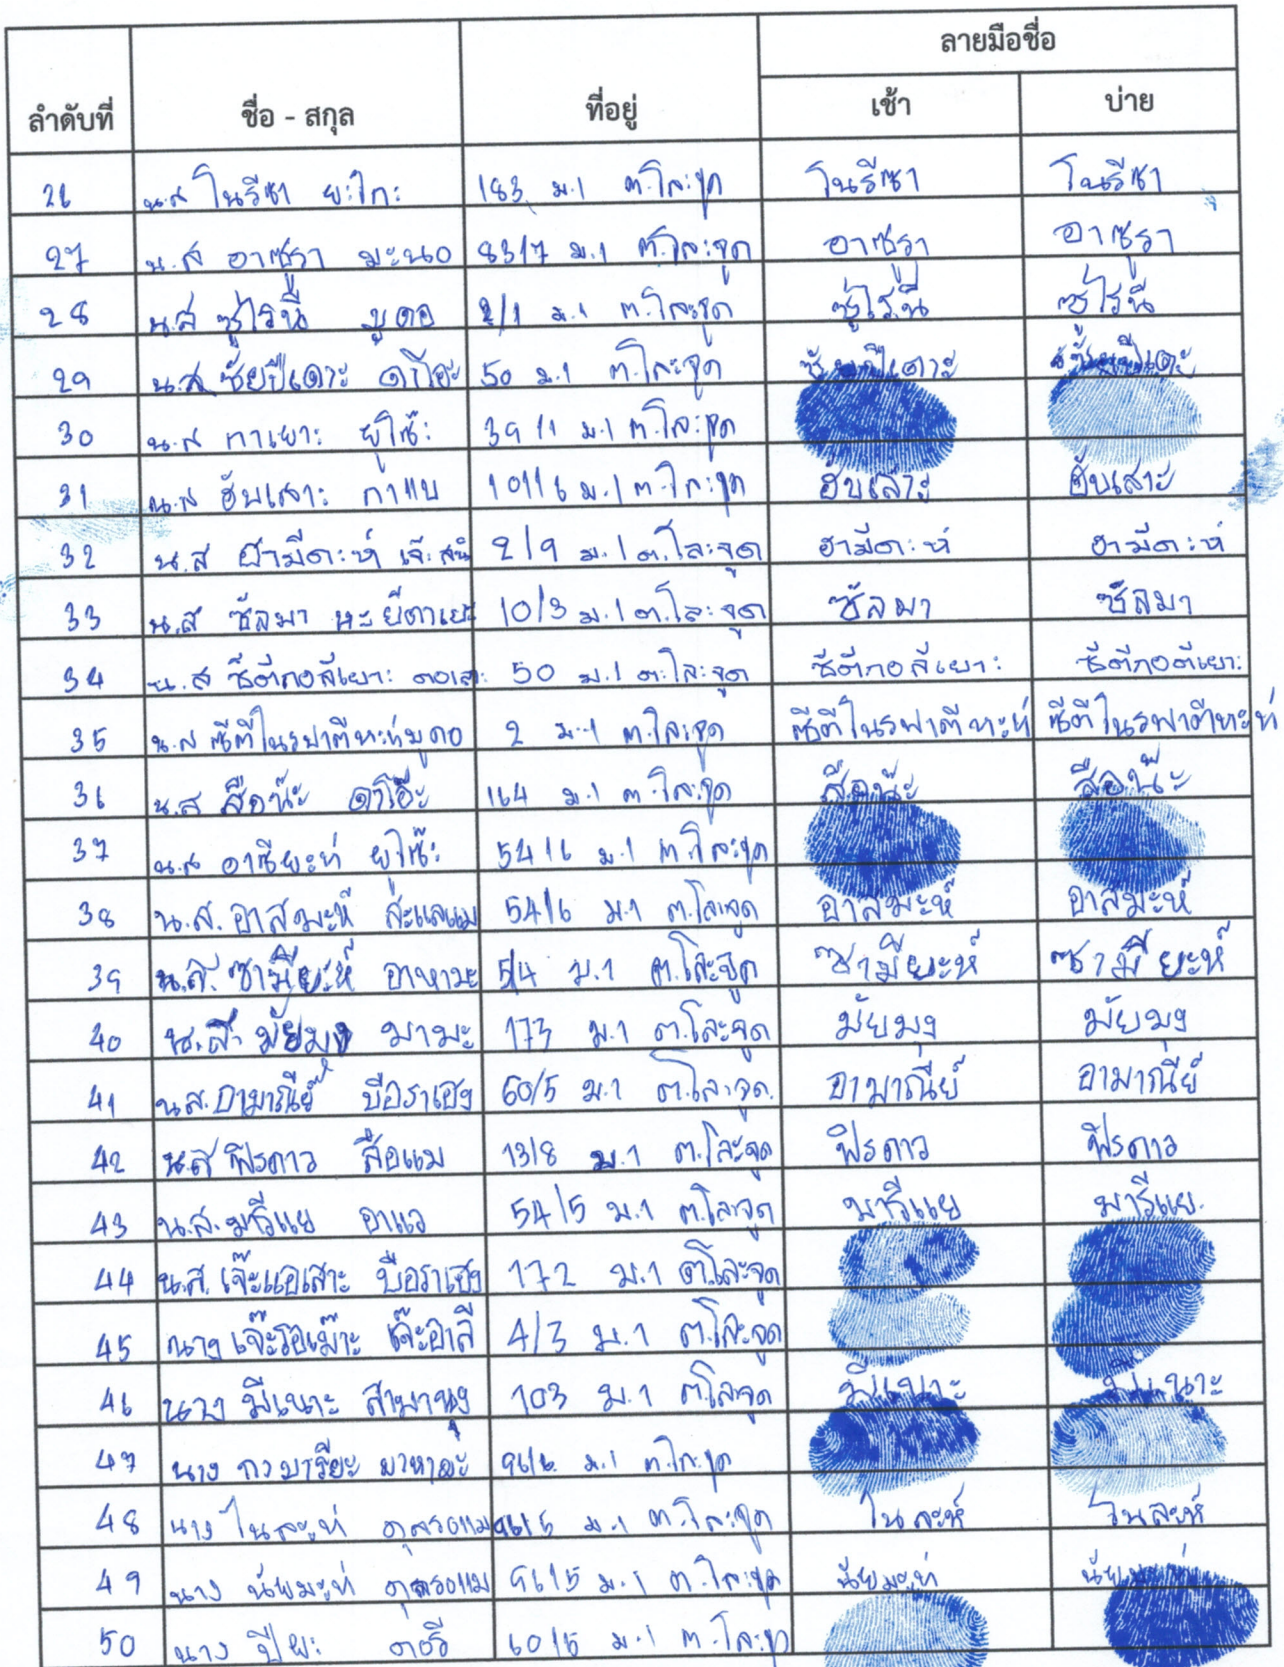 ลำดับที่ ชื่อ - สกุล ที่อยู่ ลายมือชื่อ
เช้า บ่าย
26 น.ส โนรีซา ยะโกะ 183 ม.1 ต.โละจูด โนรีซา โนรีซา
27 น.ส อาซูรา มะนอ 83/7 ม.1 ต.โละจูด อาซูรา อาซูรา
28 น.ส ซูไรนี มูดอ 2/1 ม.1 ต.โละจูด ซูไรนี ซูไรนี
29 น.ส ซัยปีเดาะ ดาโอ๊ะ 50 ม.1 ต.โละจูด ซัยปีเดาะ
30 น.ส กาเยาะ ยูโซ๊ะ 39/1 ม.1 ต.โละจูด
31 น.ส ฮับเสาะ กาแบ 101/6 ม.1 ต.โละจูด ฮับเสาะ ฮับเสาะ
32 น.ส ฮามีดะห์ เจ๊ะ 2/9 ม.1 ต.โละจูด ฮามีดะห์ ฮามีดะห์
33 น.ส ซัลมา 10/3 ม.1 ต.โละจูด ซัลมา ซัลมา
34 น.ส ซีตีกอลีเยาะ 50 ม.1 ต.โละจูด ซีตีกอลีเยาะ ซีตีกอตีเยาะ
35 น.ส ซีตีในรฟาตีหะห์ มูดอ 2 ม.1 ต.โละจูด ซีตีในรฟาตีหะห์ ซีตีในรฟาตีหะห์
36 น.ส สือน๊ะ ดาโอ๊ะ 164 ม.1 ต.โละจูด สือน๊ะ สือน๊ะ
37 น.ส อาซียะห์ ยูโซ๊ะ 54/6 ม.1 ต.โละจูด
38 น.ส. อาสมะห์ สะแลแม 54/6 ม.1 ต.โละจูด อาสมะห์ อาสมะห์
39 น.ส. ซามียะห์ อาหามะ 5/4 ม.1 ต.โละจูด ซามียะห์ ซามียะห์
40 น.ส. มัยมูง มามะ 173 ม.1 ต.โละจูด มัยมูง มัยมูง
41 น.ส. อามาณีย์ บือราเฮง 60/5 ม.1 ต.โละจูด. อามาณีย์ อามาณีย์
42 น.ส ฟิรดาว สือแม 13/8 ม.1 ต.โละจูด ฟิรดาว ฟิรดาว
43 น.ส. มารีแย อาแว 54/5 ม.1 ต.โละจูด มารีแย มารีแย.
44 น.ส. เจ๊ะแอเสาะ บือราเฮง 172 ม.1 ต.โละจูด
45 นาง เจ๊ะรอเม๊าะ เจ๊ะอาลี 4/3 ม.1 ต.โละจูด
46 นาง มีเนาะ สามานุง 103 ม.1 ต.โละจูด มีเนาะ มีเนาะ
47 นาง มาหามะ 96/6 ม.1 ต.โละจูด
48 นาง ไนละห์ 96/5 ม.1 ต.โละจูด ไนละห์ ไนละห์
49 นาง นัยมะห์ 96/5 ม.1 ต.โละจูด นัยมะห์
50 นาง ปียะ 60/5 ม.1 ต.โละจูด